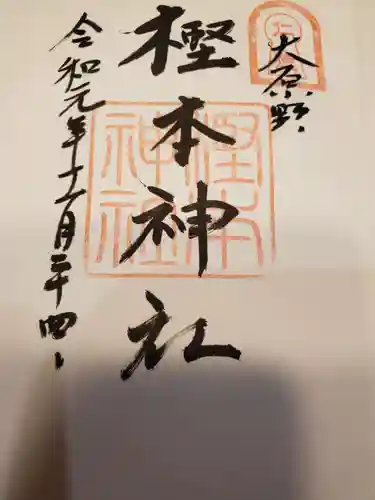 大原野
樫本神社
令和元年十一月二十四日
樫本
神社